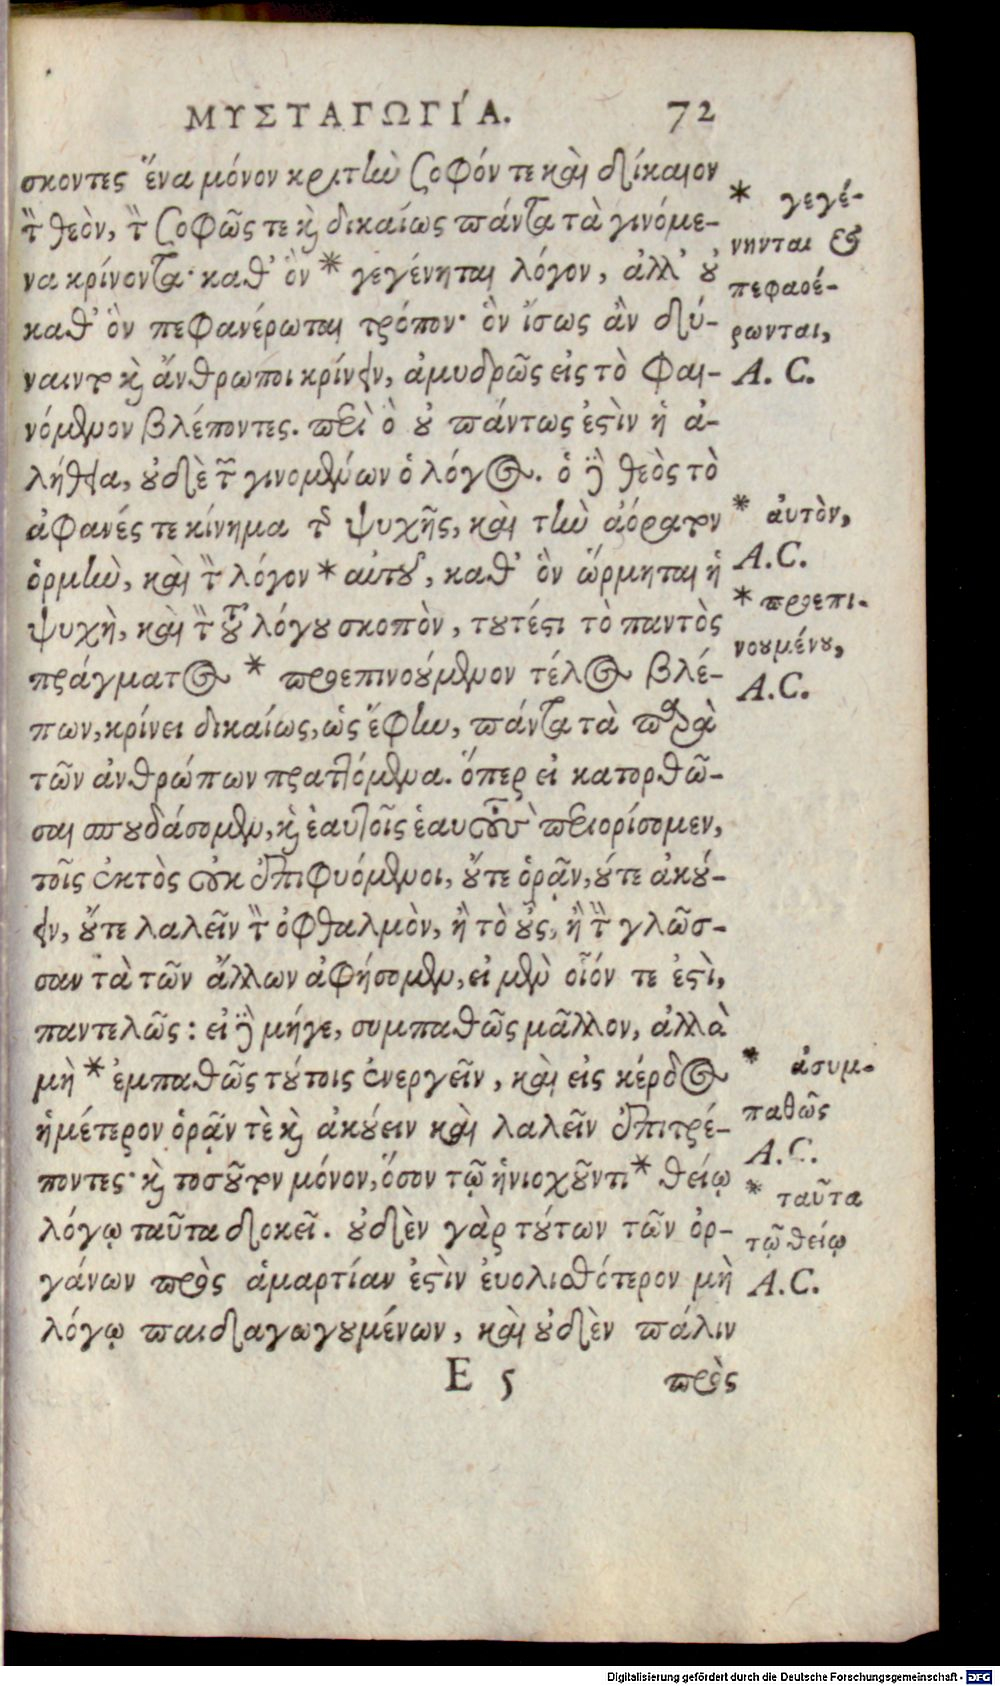 ΜΥΣΤΑΓΩΓΙ´Α. 72
σκοντες ἕνα μόνον κριτὴν σοφόν τε καὶ δίκαιον
τὸν θεὸν, τὸν σοφῶς τε καὶ δικαίως πάντα τὰ γινόμε-
να κρίνοντα· καθ' ὃν * γεγένηται λόγον, ἀλλ' οὐ
καθ' ὃν πεφανέρωται τρόπον· ὃν ἴσως ἂν δύ-
ναιντο καὶ ἄνθρωποι κρίνειν, ἀμυδρῶς εἰς τὸ φαι-
νόμενον βλέποντες. περὶ ὃ οὐ πάντως ἐστὶν ἡ ἀ-
λήθεια, οὐδὲ τῶν γινομένων ὁ λόγος. ὁ δὲ θεὸς τὸ
ἀφανές τε κίνημα τῆς ψυχῆς, καὶ τὴν ἀόρατον
ὁρμὴν, καὶ τὸν λόγον * αὐτοῦ, καθ' ὃν ὥρμηται ἡ
ψυχὴ, καὶ τὸν τοῦ λόγου σκοπὸν, τουτέστι τὸ παντὸς
πράγματος * προεπινούμενον τέλος βλέ-
πων, κρίνει δικαίως, ὡς ἔφην, πάντα τὰ παρὰ
τῶν ἀνθρώπων πραττόμενα. ὅπερ εἰ κατορθῶ-
σαι σπουδάσομεν, καὶ ἑαυτοῖς ἑαυτοὺς περιορίσομεν,
τοῖς ἐκτὸς οὐκ ἐπιφυόμενοι, οὔτε ὁρᾷν, οὔτε ἀκού-
ειν, οὔτε λαλεῖν τὸν ὀφθαλμὸν, ἢ τὸ οὖς, ἢ τὴν γλῶσ-
σαν τὰ τῶν ἄλλων ἀφήσομεν, εἰ μὲν οἷόν τε ἐστὶ,
παντελῶς: εἰ δὲ μήγε, συμπαθῶς μᾶλλον, ἀλλὰ
μὴ * ἐμπαθῶς τούτοις ἐνεργεῖν, καὶ εἰς κέρδος
ἡμέτερον ὁρᾷν τὲ καὶ ἀκούειν καὶ λαλεῖν ἐπιτρέ-
ποντες· καὶ τοσοῦτον μόνον, ὅσον τῷ ἡνιοχοῦντι * θείῳ
λόγῳ ταῦτα δοκεῖ. οὐδὲν γὰρ τούτων τῶν ὀρ-
γάνων πρὸς ἁμαρτίαν ἐστὶν εὐολισθότερον μὴ
λόγῳ παιδαγωγουμένων, καὶ οὐδὲν πάλιν
E 5 πρὸς
* γεγέ-
νηνται &
πεφαρέ-
ρωνται,
A. C.
* ἀυτὸν,
A.C.
* προεπι-
νουμένου,
A.C.
* ἀσυμ-
παθῶς
A.C.
* ταῦτα
τῷ θείῳ
A.C.
Digitalisierung gefördert durch die Deutsche Forschungsgemeinschaft - DFG